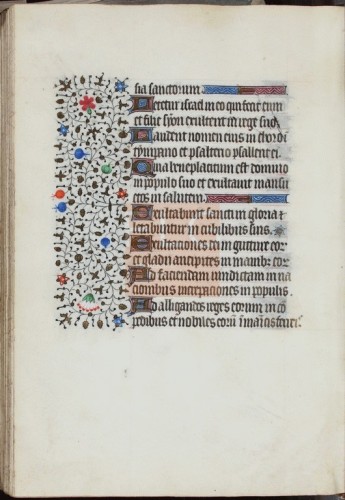 sia sanctorum
Letetur israel in eo qui fecit eum
et filie syon exultent in rege suo
Laudent nomen eius in choro i
tympano et psalterio psallent ei
Quia beneplacitum est domino
in populo suo et exultauit mansu
etos in salutem.
Exultabunt sancti in gloria et
letabuntur in cubilibus suis.
Exultationes dei in gutture eor
et gladii ancipites in manibz eor
Ad faciendam uindictam in na
cionibus increpationes in populis.
Ad alligandos reges eorum in co
pedibus et nobiles eorū ī manicis ferreis